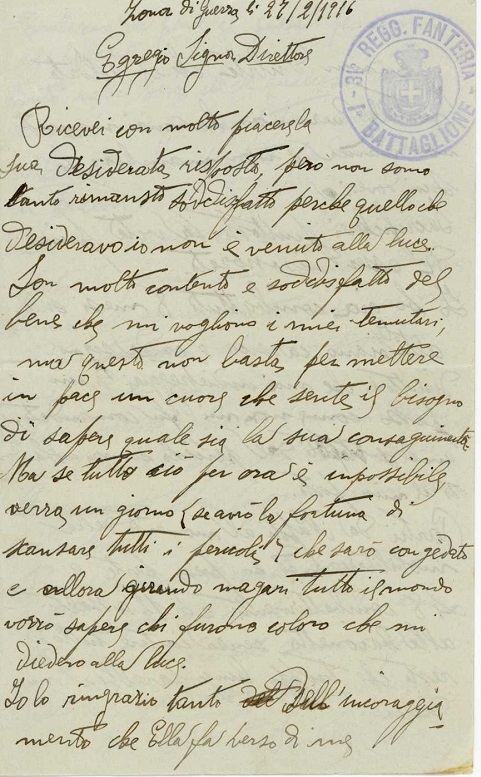 Zona di Guerra li 27/2/1916
Egregio Signor Direttore
31º REGG. FANTERIA
Iº BATTAGLIONE
Ricevei con molto piacere la
sua desiderata risposto, però non sono
tanto rimansto soddisfatto perche quello che
desideravo io non è venuto alla luce.
Son molto contento e soddisfatto del
bene che mi vogliono i miei tenutari,
ma questo non basta per mettere
in pace un cuore che sente il bisogno
di sapere quale sia la sua consaguineità.
Ma se tutto ciò per ora è impossibile
verrà un giorno (se avrò la fortuna di
scansare tutti i pericoli) che sarò congedato
e allora girando magari tutto il mondo
vorrò sapere chi furono coloro che mi
diedero alla luce.
Io lo ringrazio tanto dell'incoraggia
mento che Ella fa verso di me